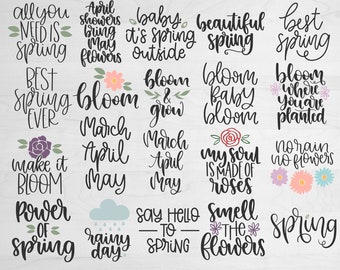 all you
NEED IS
spring
April
showers
bring
May
flowers
baby
it's spring
outside
beautiful
spring
best
spring
BEST
SPRING
EVER
bloom
bloom
&
grow
bloom
baby
bloom
bloom
where
you are
planted
make it
BLOOM
March
April
May
March
April
May
my soul
IS MADE OF
roses
no rain
no flowers
Power
of
spring
rainy
day
SAY HELLO
TO
SPRING
smell
THE
flowers
spring